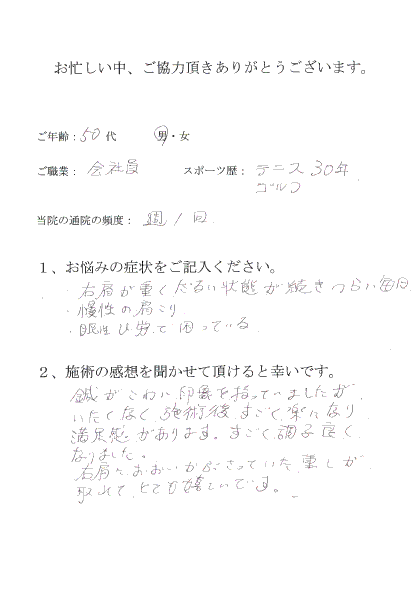 お忙しい中、ご協力頂きありがとうございます。
ご年齢：50 代 男・女
ご職業： 会社員 スポーツ歴： テニス 30年
ゴルフ
当院の通院の頻度： 週 1 回
1、お悩みの症状をご記入ください。
・右肩が重く だるい状態が続きつらい毎日
・慢性の肩こり
・眼性ひ労で困っている
2、施術の感想を聞かせて頂けると幸いです。
鍼がこわい印象を持っていましたが
いたくなく 施術後 すごく楽になり
満足感があります。すごく調子良く
なりました。
右肩におおいかぶさっていた重しが
取れて、とても嬉しいです。